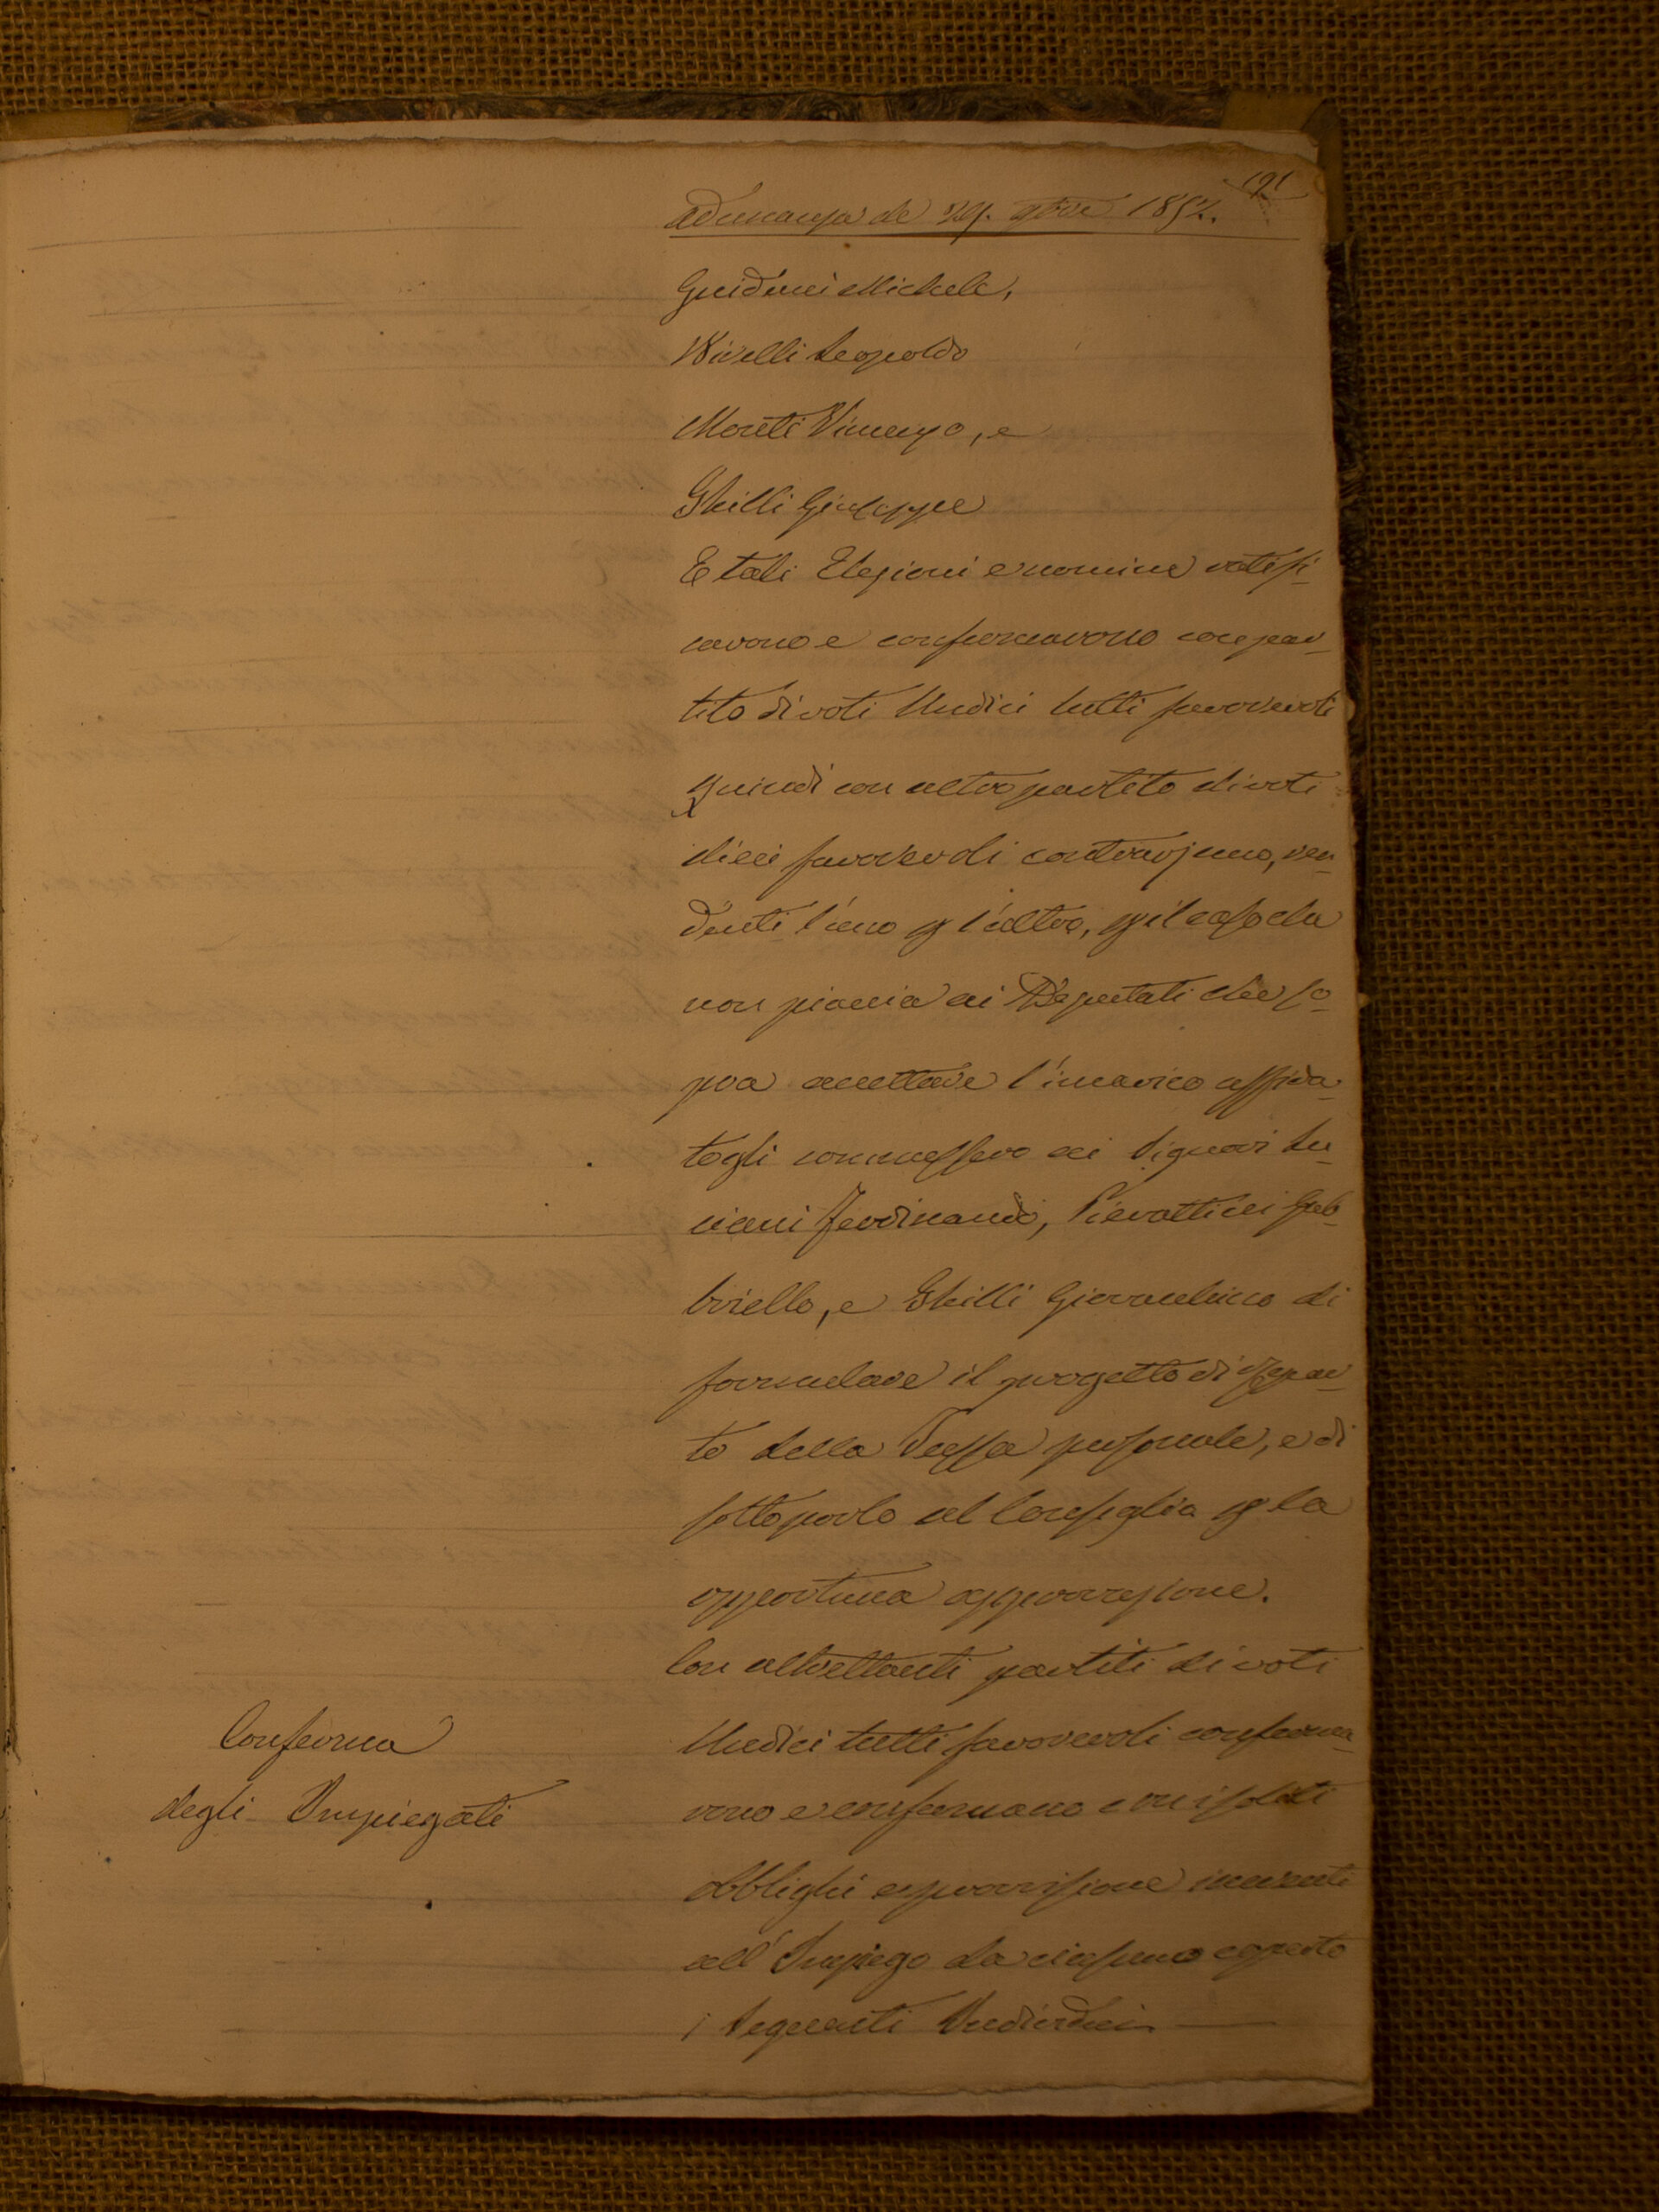 191
Adunanza de 29. 9bre 1852.
Guiducci Michele,
Bivelli Leopoldo
Moretti Vincenzo, e
Ghilli Giuseppe
E tali Elezioni e nomine ratifi-
carono e confermarono con par-
tito di voti Undici tutti favorevoli
Quindi con altro partito di voti
dieci favorevoli contrarj uno, ren-
denti l'uno p l'altro, p il caso che
non piaccia ai Deputati che so-
pra accettare l'incarico affida-
togli commessero ai Signori Lu-
ciani Ferdinando, Pierattini Gab-
briello, e Ghilli Giovacchino di
formulare il progetto di Repar-
to della Tassa personale, e di
sottoporlo al Consiglio p la
opportuna approvazione.
Con altrettanti partiti di voti
Conferma
degli Impiegati
Undici tutti favorevoli conferma-
rono e confermano con i soliti
obblighi e provvisione inerenti
all'Impiego da ciascuno coperto
i Seguenti Individui